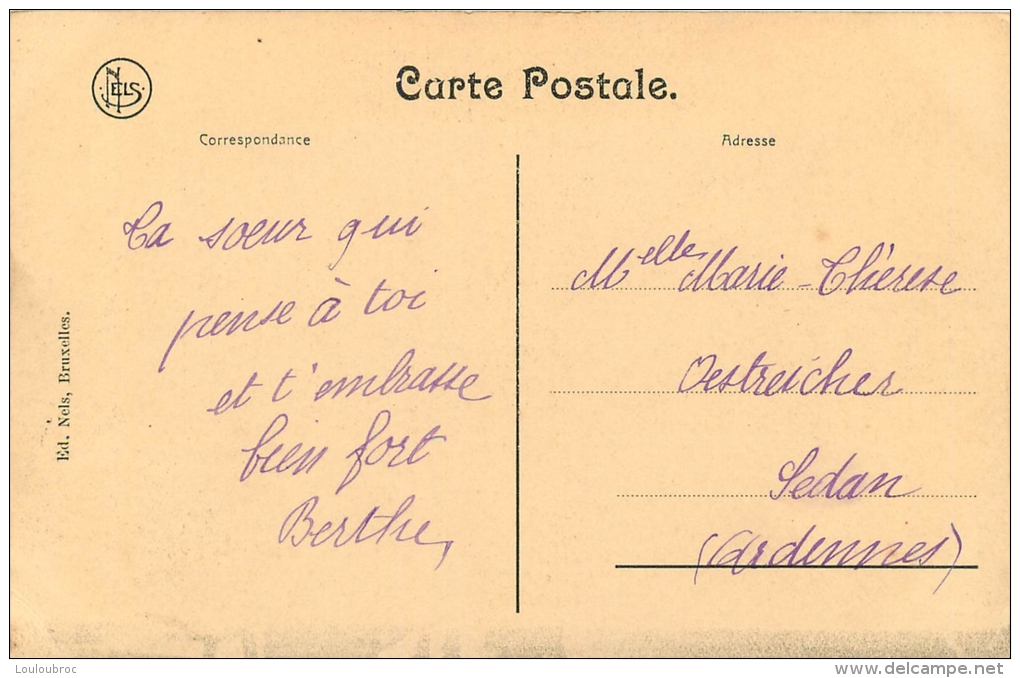 NELS
Carte Postale.
Correspondance
Ta soeur qui
pense à toi
et t'embrasse
bien fort
Berthe,
Adresse
Melle Marie-Thérèse
Oestreicher
Sedan
(Ardennes)
Ed. Nels, Bruxelles.
Louloubroc
delcampe.net